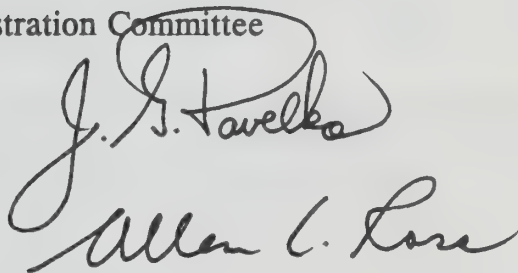 stration Committee
J. G. Pavelka
Allen C. Ross